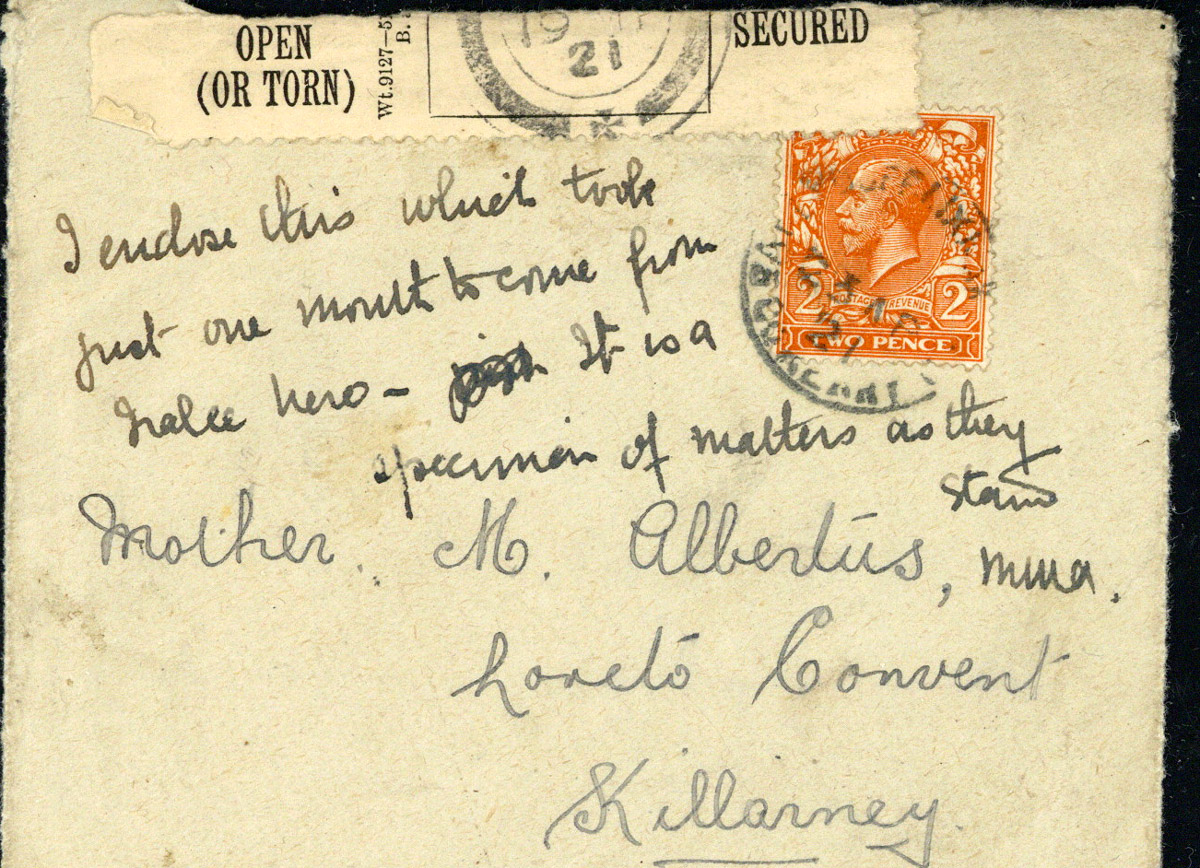 OPEN
(OR TORN)
Wt.9127—5
B.
21
SECURED
I enclose this which took
just one month to come from
Tralee here – It is a
specimen of matters as they
stand
2 POSTAGE REVENUE 2
TWO PENCE
Mother. M. Albertus,
Loreto Convent
Killarney.